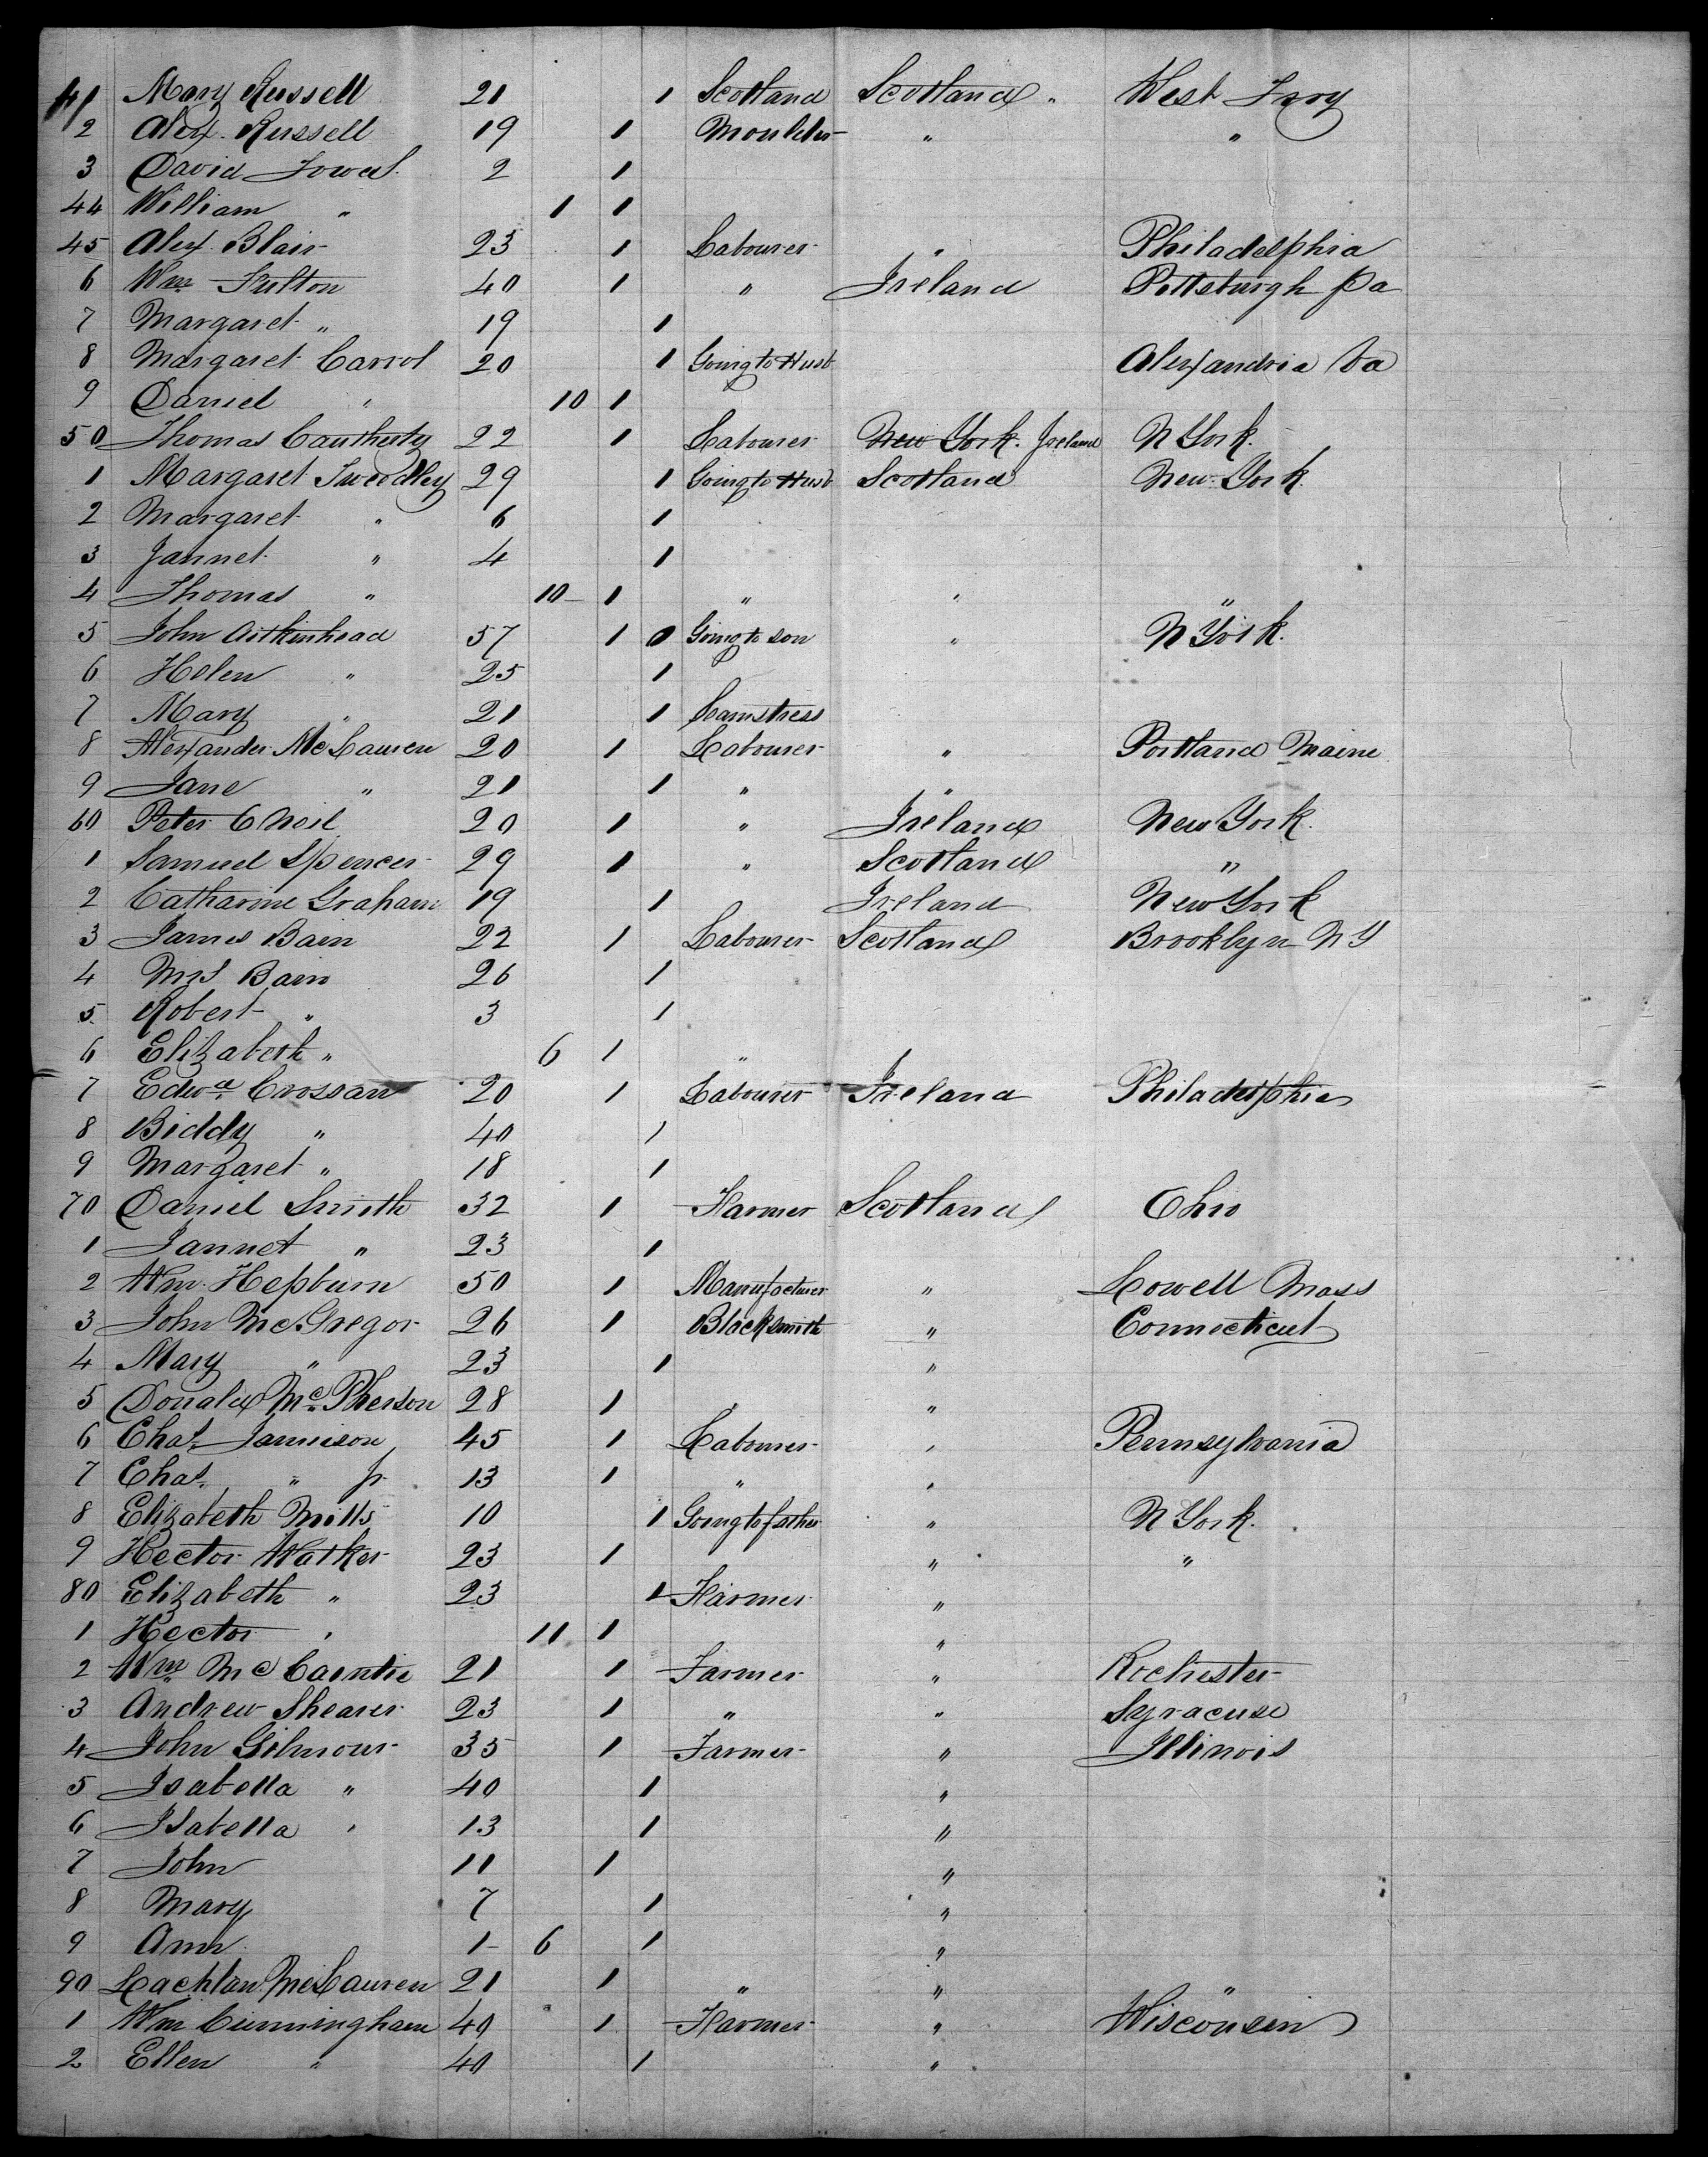 41 Mary Russell 21 1 Scotland Scotland " West Troy
2 Alex. Russell 19 1 Moulder " "
3 David Towal 2 1
44 William " 1 1
45 Alex. Blair 23 1 Labourer " Philadelphia
6 Wm Fulton 40 1 " Ireland Pittsburgh Pa
7 Margaret " 19 1
8 Margaret Carrol 20 1 Going to Husb Alexandria Va
9 Daniel " 10 1
50 Thomas 22 1 Labourer New York. Ireland N York.
1 Margaret Tweedley 29 1 Going to Husb Scotland New York
2 Margaret " 6 1
3 Jannet " 4 1
4 Thomas " 10 1 " " "
5 John Aitkenhead 57 1 0 Going to son " N York.
6 Helen " 25 1
7 Mary " 21 1 Samstress
8 Alexander McLauren 20 1 Labourer " Portland Maine
9 Jane " 21 1 " "
60 Peter O Neil 20 1 " Ireland New York.
1 Samuel Spencer 29 1 " Scotland "
2 Catharine Graham 19 1 Ireland New York
3 James Bain 22 1 Labourer Scotland Brooklyn N Y
4 Mrs Bain 26 1
5 Robert " 3 1
6 Elizabeth " 6 1 "
7 Edwd Crossan 20 1 Labourer Ireland Philadelphia
8 Biddy " 40 1
9 Margaret " 18 1
70 Daniel Smith 32 1 Farmer Scotland Ohio
1 Jannet " 23 1
2 Wm. Hepburn 50 1 Manufacturer " Lowell Mass
3 John McGregor 26 1 Blacksmith " Connecticut
4 Mary " 23 1 "
5 Donald McPherson 28 1 "
6 Chas. Jamieson 45 1 Labourer " Pennsylvania
7 Chas. " Jr 13 1 " "
8 Elizabeth Mills 10 1 Going to father " N York.
9 Hector Walker 23 1 " "
80 Elizabeth " 23 1 Farmer "
1 Hector " 11 1 "
2 Wm 21 1 Farmer " Rochester
3 Andrew Shearer 23 1 " " Syracuse
4 John Gilmour 35 1 Farmer " Illinois
5 Isabella " 40 1 "
6 Isabella " 13 1 "
7 John 11 1 "
8 Mary 7 1 "
9 Ann 1 6 1 "
90 Lachlan McLauren 21 1 " " "
1 Wm Cunningham 40 1 Farmer " Wisconsin
2 Ellen " 40 1 "